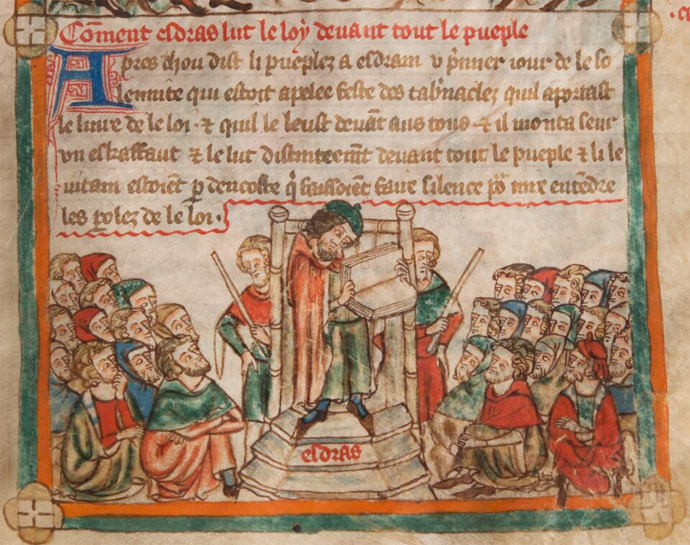 Coment esdras lut le loy deuant tout le pueple
Apres chou dist li pueplez a esdram v p̄mier iour de le so
lemnite qui estoit apelee feste des tab'naclez quil aportast
le liure de le loi · ⁊ quil le leust deuāt aus tous · ⁊ il monta seur
vn eskaffaut ⁊ le lut deuant tout le pueple ⁊ li le
estoiēt ꝑ dencoste silence entēdre
les ꝑolez de le loi ·
esdras